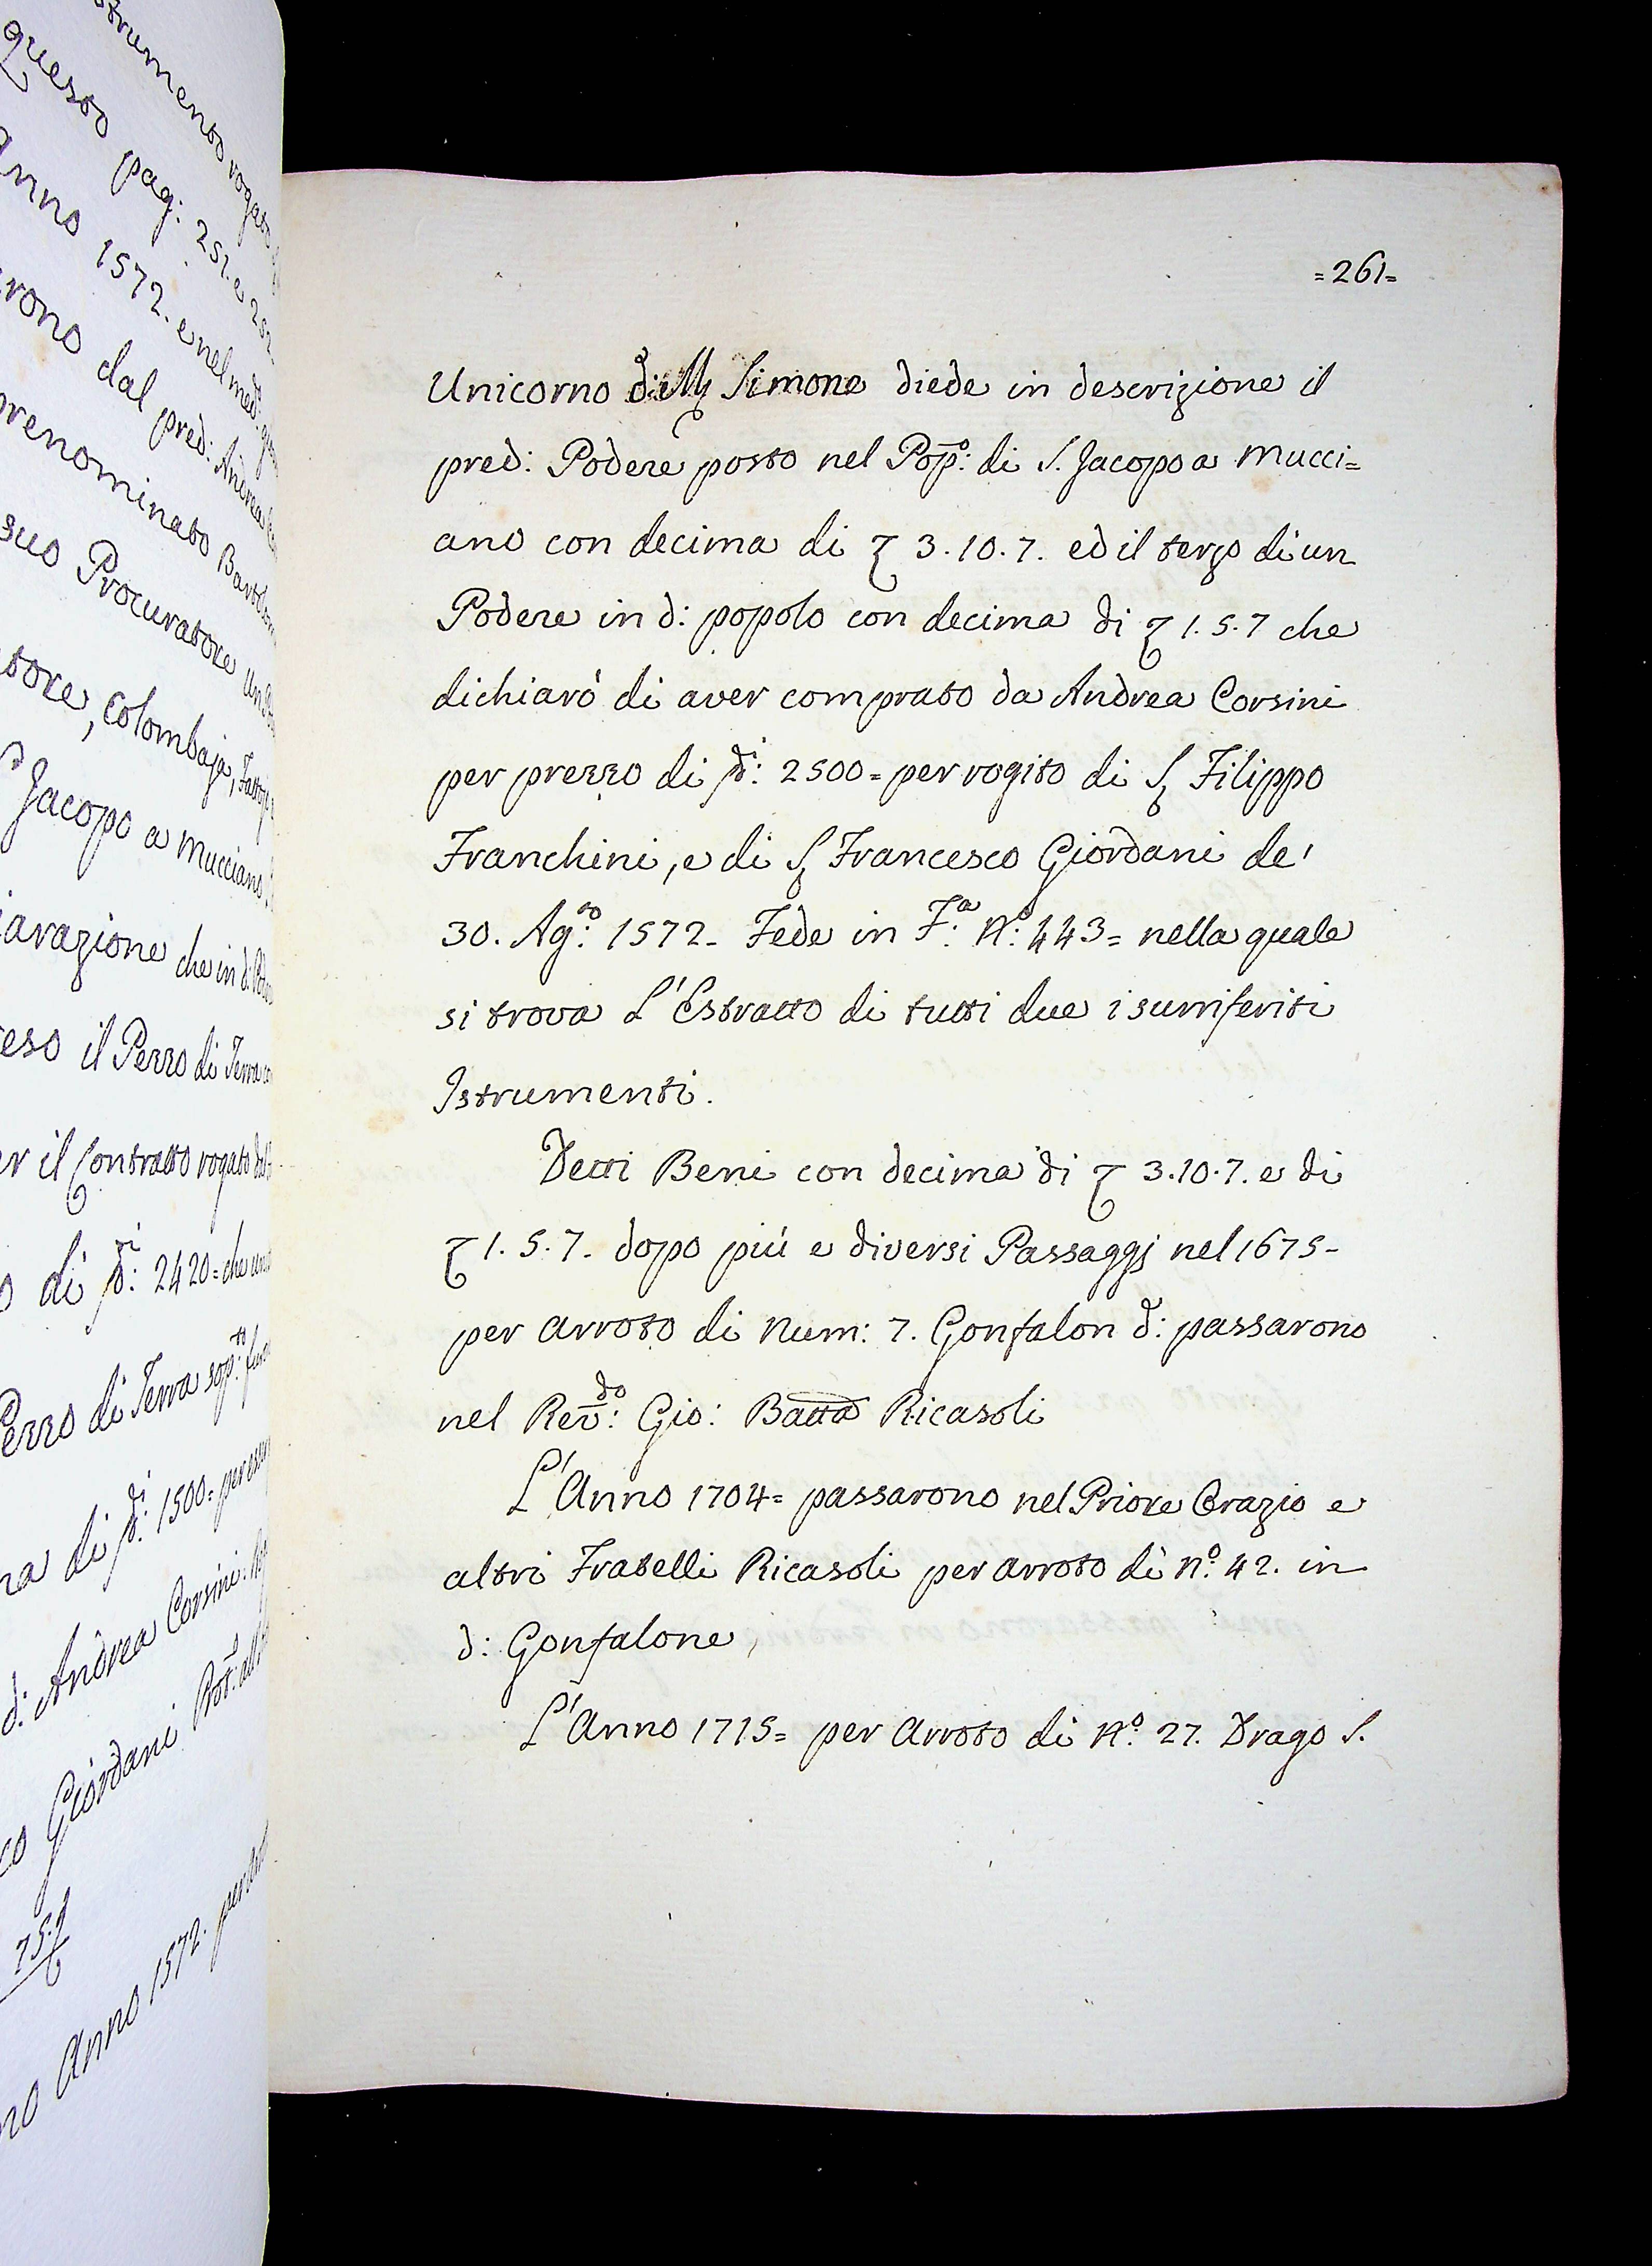 strumento rogato
questo pag: 251. e 252.
Anno 1572. e nel med:
rono dal pred: Andrea
prenominato Bartolom
suo Procuratore un
tore, Colombaja, Fattoj
Jacopo a Mucciano
iarazione che in d: Pode
eso il Pezzo di Terra
er il Contratto rogato dal
o di ꝭ:ᵈⁱ 2420= che
Pezzo di Terra sop:ᵗᵒ
na di ꝭ:ᵈⁱ 1500= per
d: Andrea Corsini:
co Giordani
75.
no Anno 1572. per
=261=
Unicorno di Mỹ Simone diede in descrizione il
pred: Podere posto nel Pop:º di S. Jacopo a Mucci=
ano con decima di ꝭ 3.10.7. ed il terzo di un
Podere in d: popolo con decima di ꝭ 1.5.7 che
dichiarò di aver comprato da Andrea Corsini
per prezzo di ꝭ:ᵈⁱ 2500= per rogito di S Filippo
Franchini, e di S Francesco Giordani de'
30. Ag:ᵗᵒ 1572- Fede in F:ᵃ N:º 443= nella quale
si trova L'Estratto di tutti due i surriferiti
Istrumenti.
Detti Beni con decima di ꝭ 3.10.7. e di
ꝭ 1.5.7. dopo più e diversi Passaggj nel 1675-
per arroto di Num: 7. Gonfalon d: passarono
nel Rev:ᵈᵒ Gio: Batta Ricasoli
L'Anno 1704= passarono nel Priore Orazio e
altri Fratelli Ricasoli per arroto di N:º 42. in
d: Gonfalone,
L'Anno 1715= per Arroto di N:º 27. Drago S.